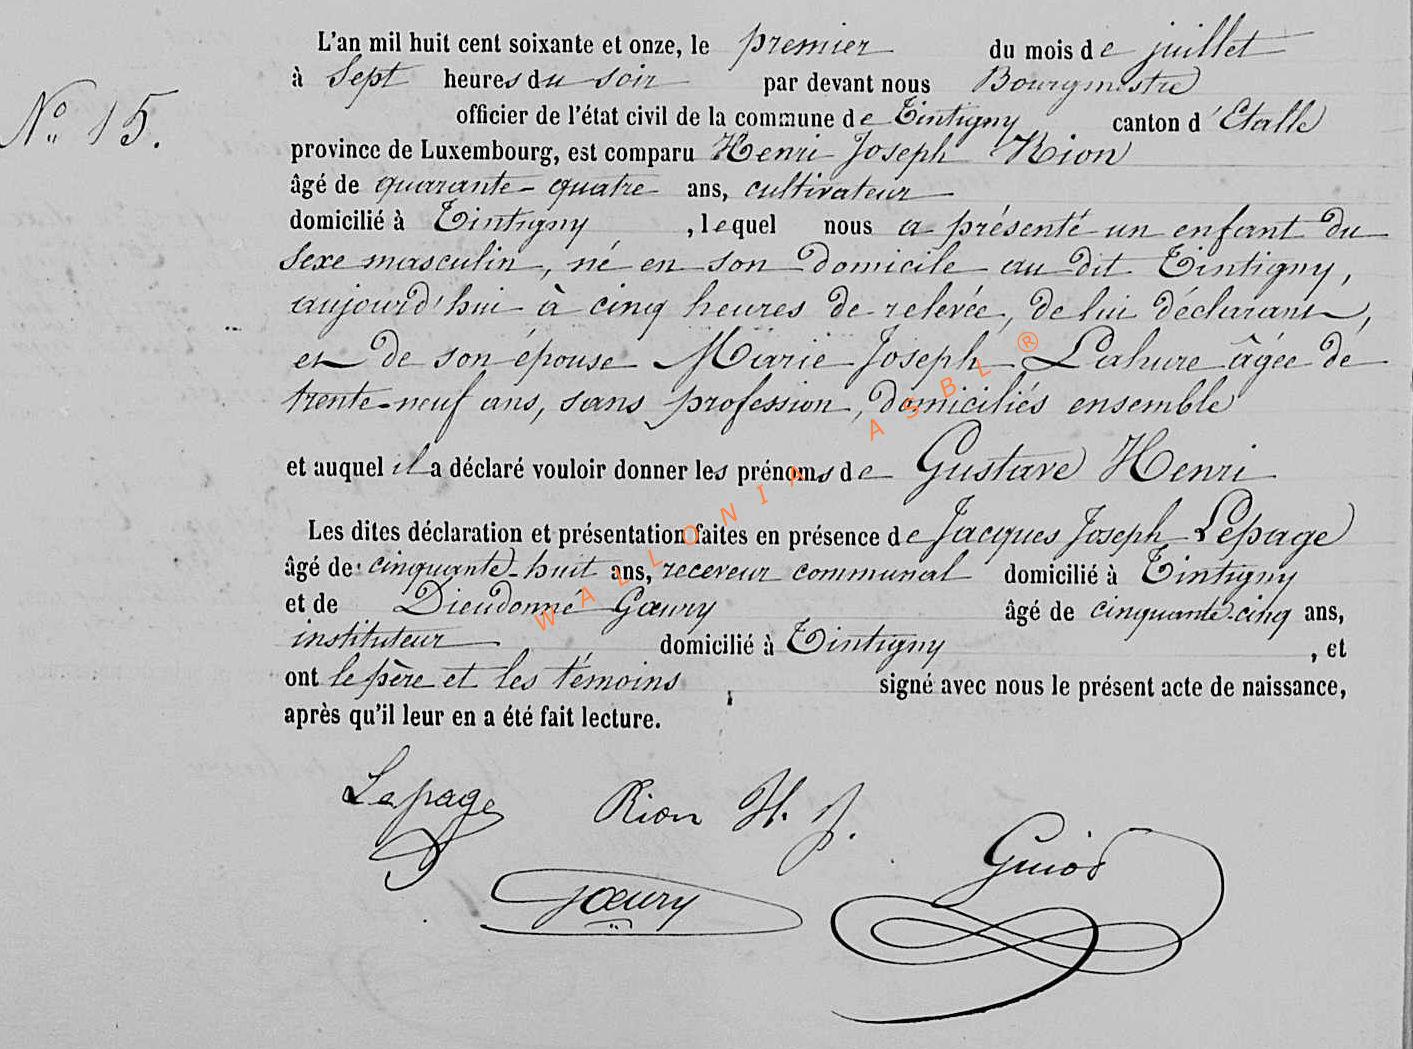 L'an mil huit cent soixante et onze, le premier du mois de juillet
à Sept heures du soir par devant nous Bourgmestre
officier de l'état civil de la commune de Tintigny canton d'Etalle
N° 15.
province de Luxembourg, est comparu Henri Joseph Rion
âgé de quarante-quatre ans, cultivateur
domicilié à Tintigny, lequel nous a présenté un enfant du
sexe masculin, né en son domicile au dit Tintigny,
aujourd'hui à cinq heures de relevée, de lui déclarant,
et de son épouse Marie Joseph Lahure âgée de
trente-neuf ans, sans profession, domiciliés ensemble
et auquel il a déclaré vouloir donner les prénoms de Gustave Henri
Les dites déclaration et présentation faites en présence de Jacques Joseph Lepage
âgé de cinquante-huit ans, receveur communal domicilié à Tintigny
et de Dieudonné Gœury âgé de cinquante-cinq ans,
instituteur domicilié à Tintigny, et
ont le père et les témoins signé avec nous le présent acte de naissance,
après qu'il leur en a été fait lecture.
Lepage Rion H. J.
Gœury Guiot
WALLONIA ASBL ®